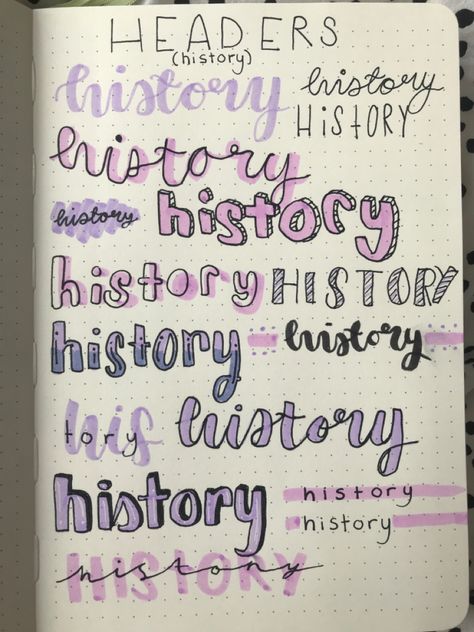 HEADERS
(history)
history history
HISTORY
history
history history
history HISTORY
history history
history history
history history
history
HISTORY history